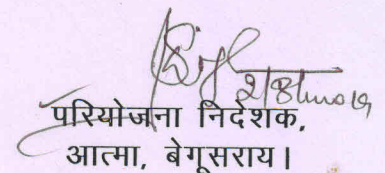 परियोजना निदेशक,
आत्मा, बेगूसराय।